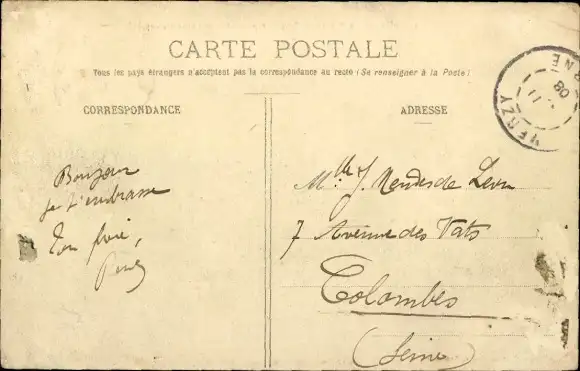 CARTE POSTALE
Tous les pays étrangers n'acceptent pas la correspondance au recto (Se renseigner à la Poste)
CORRESPONDANCE
ADRESSE
Bonjour
je t'embrasse
Ton
Mlle J. Mendes de Leon
7 Avenue des Vats
Colombes
(Seine)
VERZY
11
08